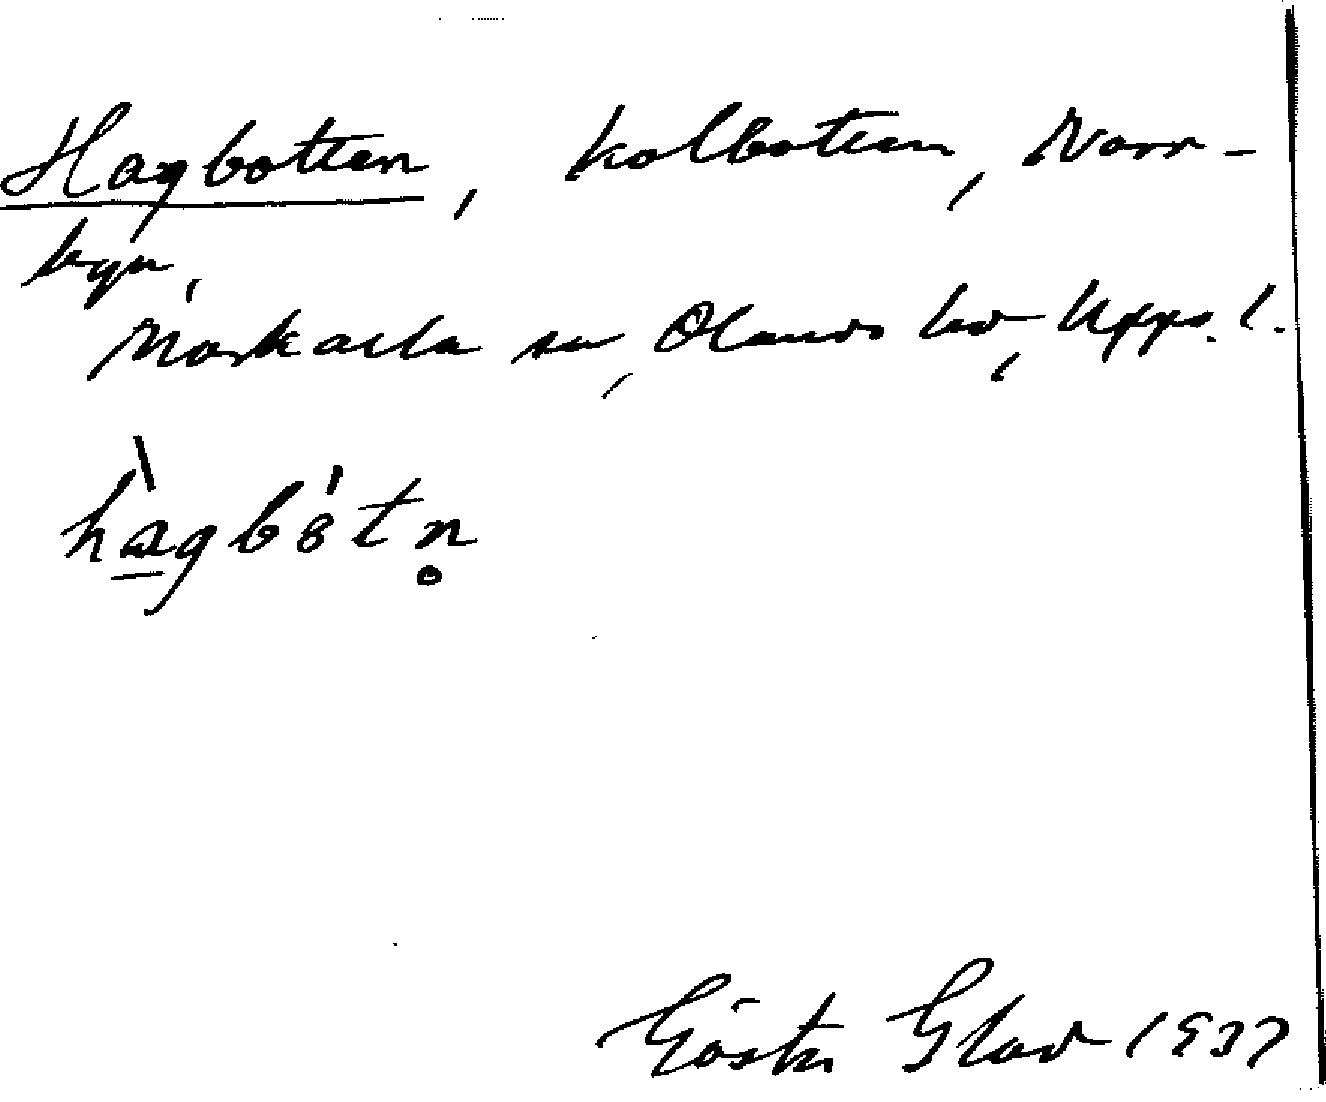 Hagbotten, kolbotten, Norr-
byn,
Morkarla sn, Olands hd, Upps. l.
hàgbòtn̥
Gösta Glad 1937